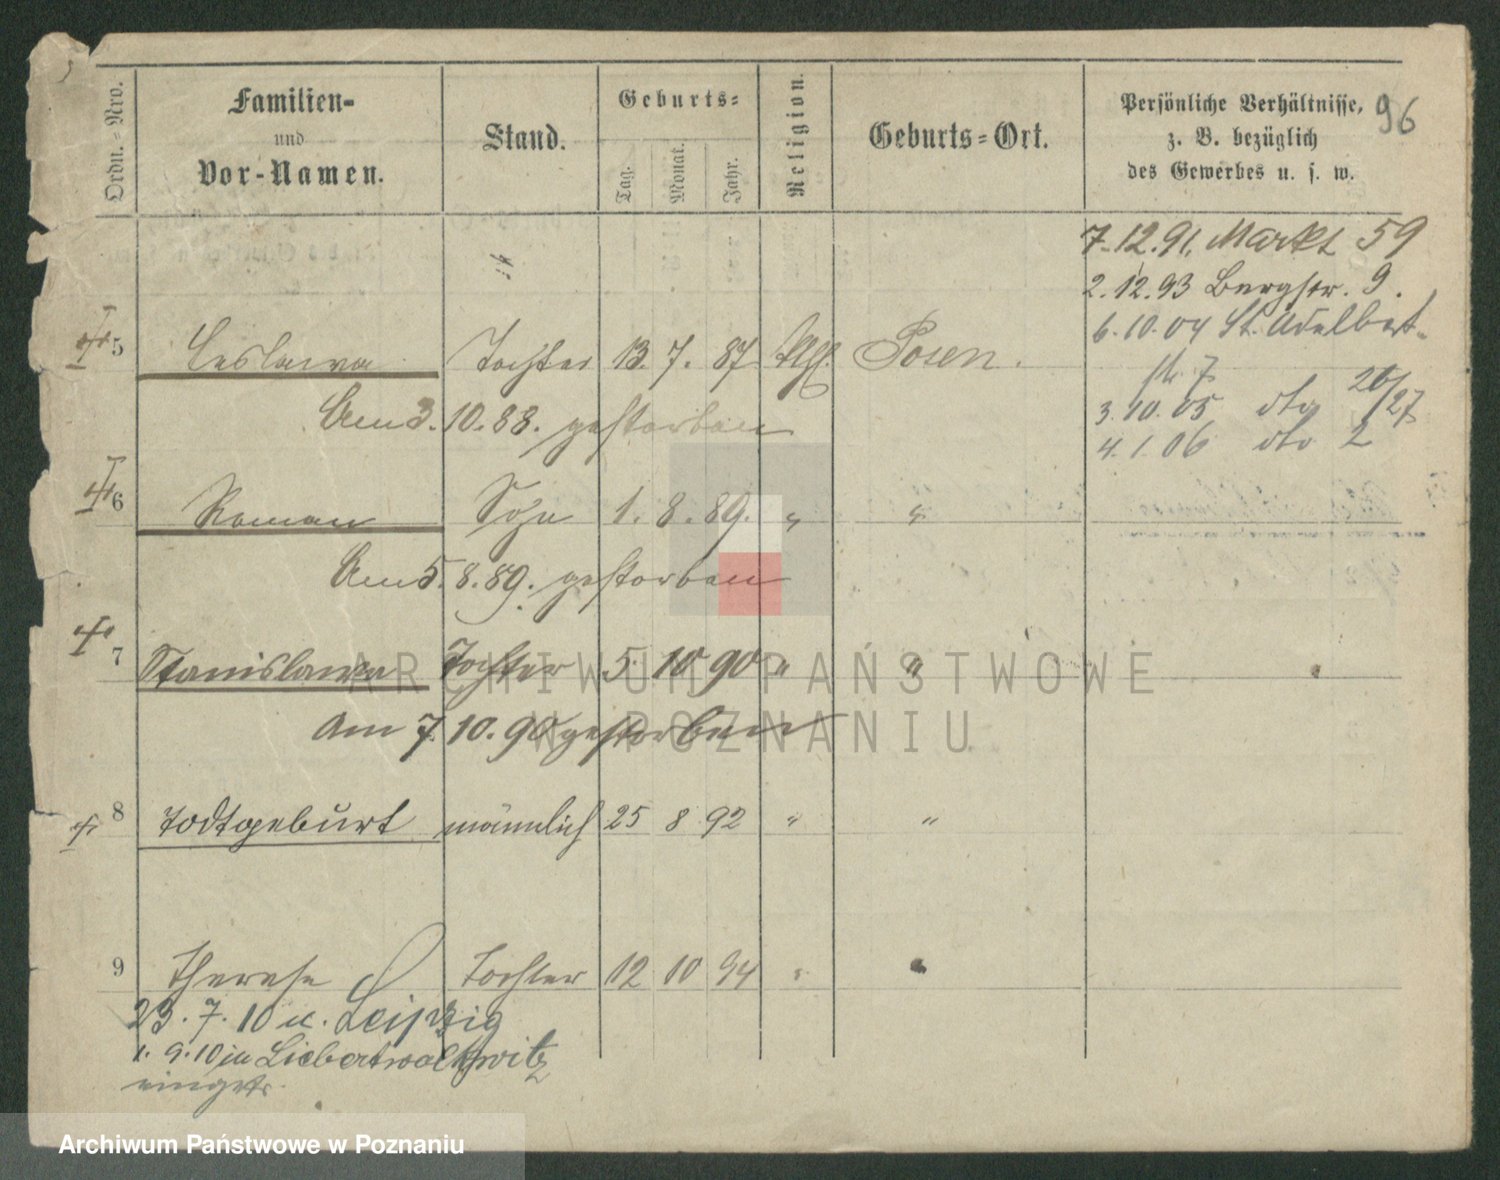 Ordn.=Nro.
Familien=
und
Vor-Namen.
Stand.
Geburts=
Tag.
Monat.
Jahr.
Religion.
Geburts=Ort.
Persönliche Verhältnisse,
z. B. bezüglich
des Gewerbes u. s. w.
96
7.12.91. Markt 59
2.12.93 Bergstr. 9.
6.10.04 St. Adelbert-
str. 7
3.10.05 dto 26/27
4.1.06 dto 2
5 Ceslawa Tochter 13. 7. 87 Posen.
Am 3.10.88. gestorben
6 Roman Sohn 1. 8. 89. " "
Am 5.8.89. gestorben
7 Stanislawa Tochter 5. 10 90 " "
Am 7.10.90 gestorben
8 Todtgeburt männlich 25 8 92 " "
9 Therese Tochter 12 10 94 " "
23.7.10 n. Leipzig
1.9.10 in Liebertwolkwitz
ARCHIWUM PAŃSTWOWE
W POZNANIU
Archiwum Państwowe w Poznaniu